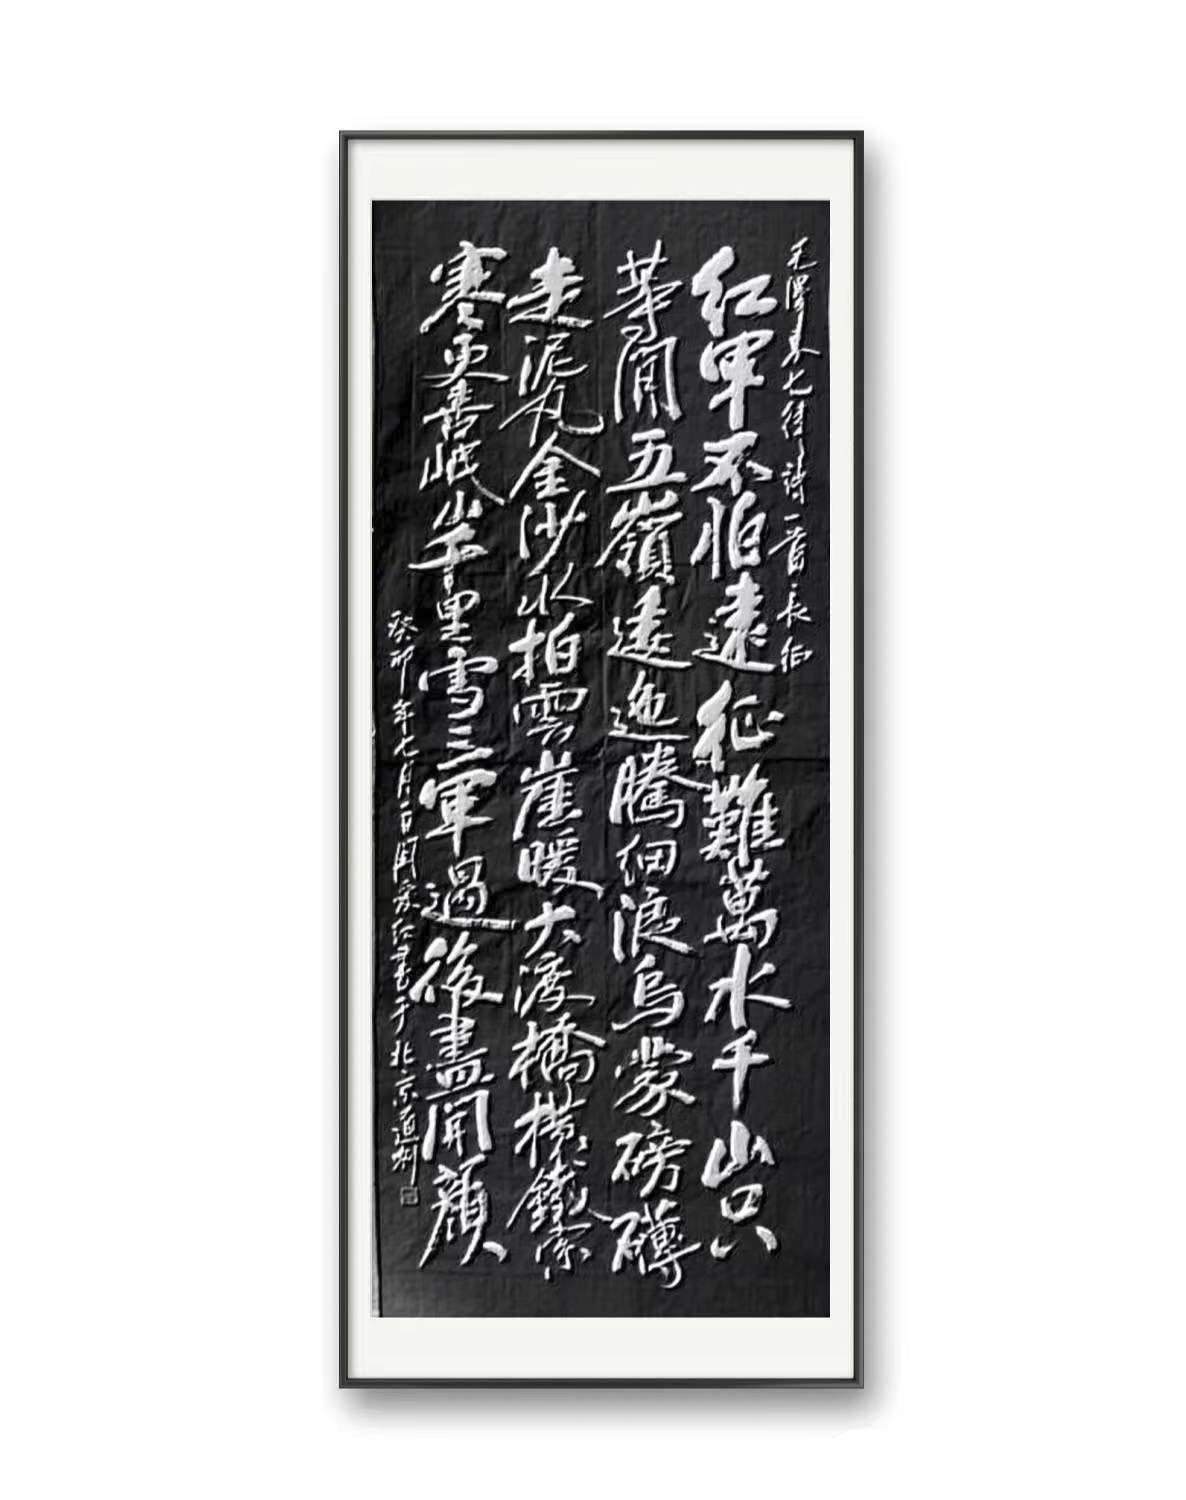 毛澤東七律詩一首長征
红軍不怕遠征難萬水千山只
等閒五嶺逶迤騰細浪烏蒙磅礴
走泥丸金沙水拍雲崖暖大渡橋橫鐵索
寒更喜岷山千里雪三軍過後盡開顏
癸卯年七月一日周红書于北京通州